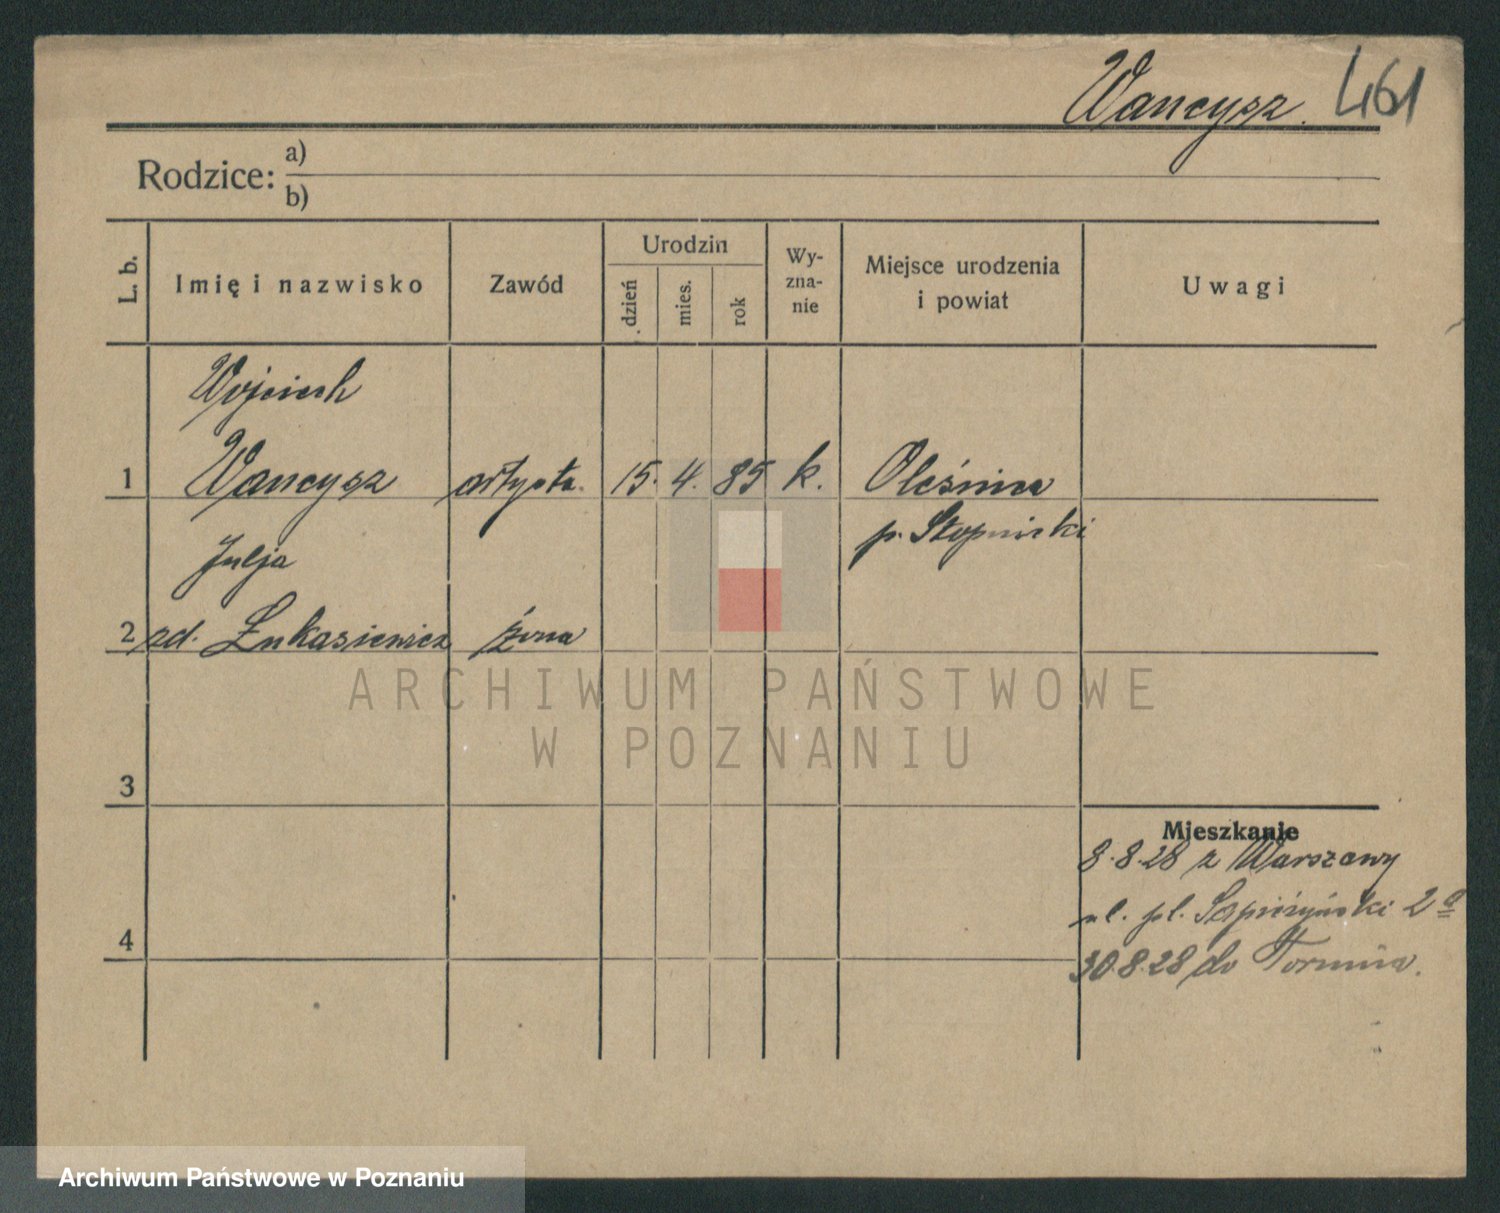 Wancysz. 461
Rodzice: a)
b)
L. b.
Imię i nazwisko
Zawód
Urodzin
dzień
mies.
rok
Wy-
zna-
nie
Miejsce urodzenia
i powiat
Uwagi
Wojciech
1 Wancysz artysta. 15. 4. 85 k. Oleśnica
p. Stopnicki
Julja
2 zd. Łukasiewicz żona
ARCHIWUM PAŃSTWOWE
W POZNANIU
3
Mieszkanie
8.8.28 z Warszawy
ul. pl. Sapieżyński 2a
4
30.8.28 do Torunia.
Archiwum Państwowe w Poznaniu